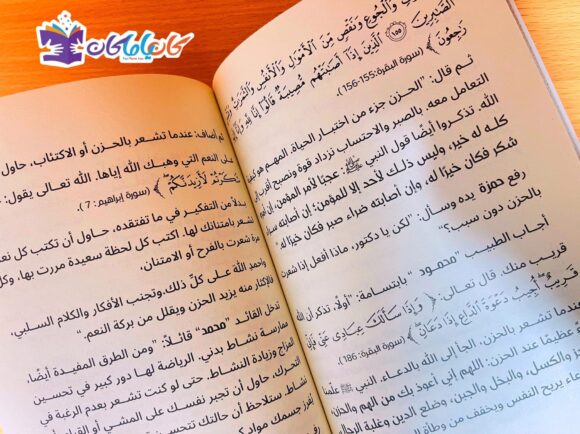 كان ياما كان
وَالْجُوعِ وَنَقْصٍ مِنَ الْأَمْوَالِ وَالْأَنْفُسِ وَالثَّمَرَاتِ
الصَّابِرِينَ ١٥٥ الَّذِينَ إِذَا أَصَابَتْهُمْ مُصِيبَةٌ قَالُوا إِنَّا لِلَّهِ
رَاجِعُونَ ﴾ (سورة البقرة:155-156).
ثم قال: "الحزن جزء من اختبار الحياة. المهم هو كيف
التعامل معه. بالصبر والاحتساب نزداد قوة ونصبح أقرب
الله. تذكروا أيضًا قول النبي ﷺ: عجبًا لأمر المؤمن، إن أمره
كله له خير، وليس ذلك لأحد إلا للمؤمن؛ إن أصابته
شكر فكان خيرًا له، وإن أصابته ضراء صبر فكان خيرًا له"
رفع حمزة يده وسأل: "لكن يا دكتور، ماذا أفعل إذا شعرت
بالحزن دون سبب؟"
أجاب الطبيب "محمود" بابتسامة: "أولًا، تذكر أن الله
قريب منك. قال تعالى: ﴿ وَإِذَا سَأَلَكَ عِبَادِي عَنِّي فَإِنِّي
قَرِيبٌ أُجِيبُ دَعْوَةَ الدَّاعِ إِذَا دَعَانِ ﴾ (سورة البقرة: 186).
عندما تشعر بالحزن، الجأ إلى الله بالدعاء. النبي ﷺ علمنا
عظيمًا عند الحزن: اللهم إني أعوذ بك من الهم والحزن،
والكسل، والبخل والجبن، وضلع الدين وغلبة الرجال
عاء يريح النفس ويخفف من وطأة
ثم أضاف: عندما تشعر بالحزن أو الاكتئاب، حاول
على النعم التي وهبك الله إياها. الله تعالى يقول:
شَكَرْتُمْ لَأَزِيدَنَّكُمْ ﴾ (سورة إبراهيم: 7).
بدلًا من التفكير في ما تفتقده، حاول أن تكتب كل
تشعر بامتنانك لها. اكتب كل لحظة سعيدة مررت بها، وكل
مرة شعرت بالفرح أو الامتنان،
وأحمدِ الله على كلِّ ذلك،وتجنب الأفكار والكلام السلبي،
فالإكثار منه يزيد الحزن ويقلل من بركة النعم."
تدخل القائد "محمد" قائلًا: "ومن الطرق المفيدة أيضًا،
ممارسة نشاط بدني. الرياضة لها دور كبير في تحسين
المزاج وزيادة النشاط. حتى لو كنت تشعر بعدم الرغبة في
التحرك، حاول أن تجبر نفسك على المشي أو القيام
نشاط. ستلاحظ أن حالتك تتحسن
جسمك مواد